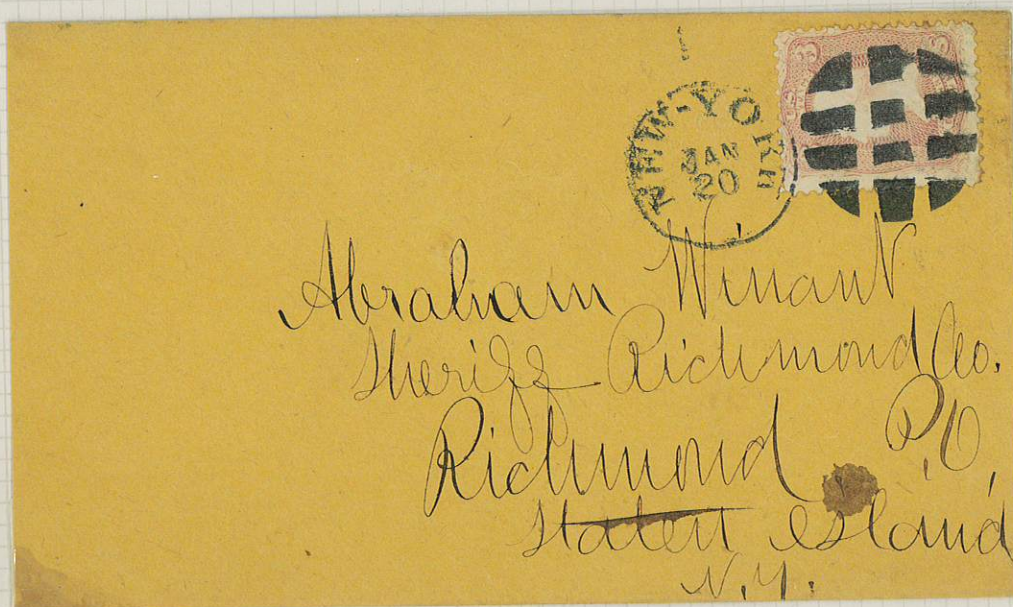 NEW-YORK
JAN
20
3
Abraham Winant
Sheriff Richmond Co.
Richmond P.O.
Staten Island
N.Y.